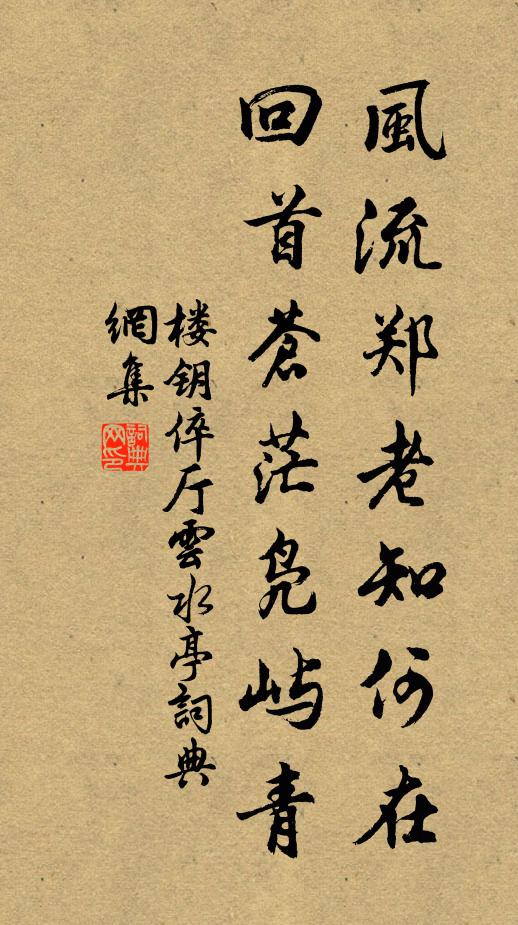 風流郑老知何在
回首蒼茫凫屿青
楼钥倅厅雲水亭詞典
網集
詞典網印